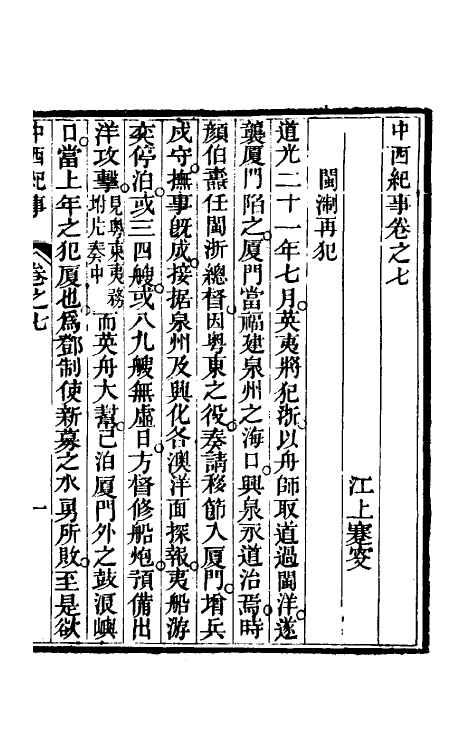 中西紀事卷之七
江上蹇叟
閩浙再犯
道光二十一年七月英夷將犯浙以舟師取道過閩洋遂
襲厦門陷之厦門當福建泉州之海口興泉永道治焉時
顔伯燾任閩浙總督因粵東之役奏請移節入厦門增兵
戍守撫事旣成接据泉州及興化各澳洋面探報夷船游
奕停泊或三四艘或八九艘無虛日方督修船炮預備出
洋攻擊見粵東夷務附片奏中而英舟大幫已泊厦門外之鼓浪嶼
口當上年之犯厦也爲鄧制使新募之水勇所敗至是欲
中西紀事
卷之七
一